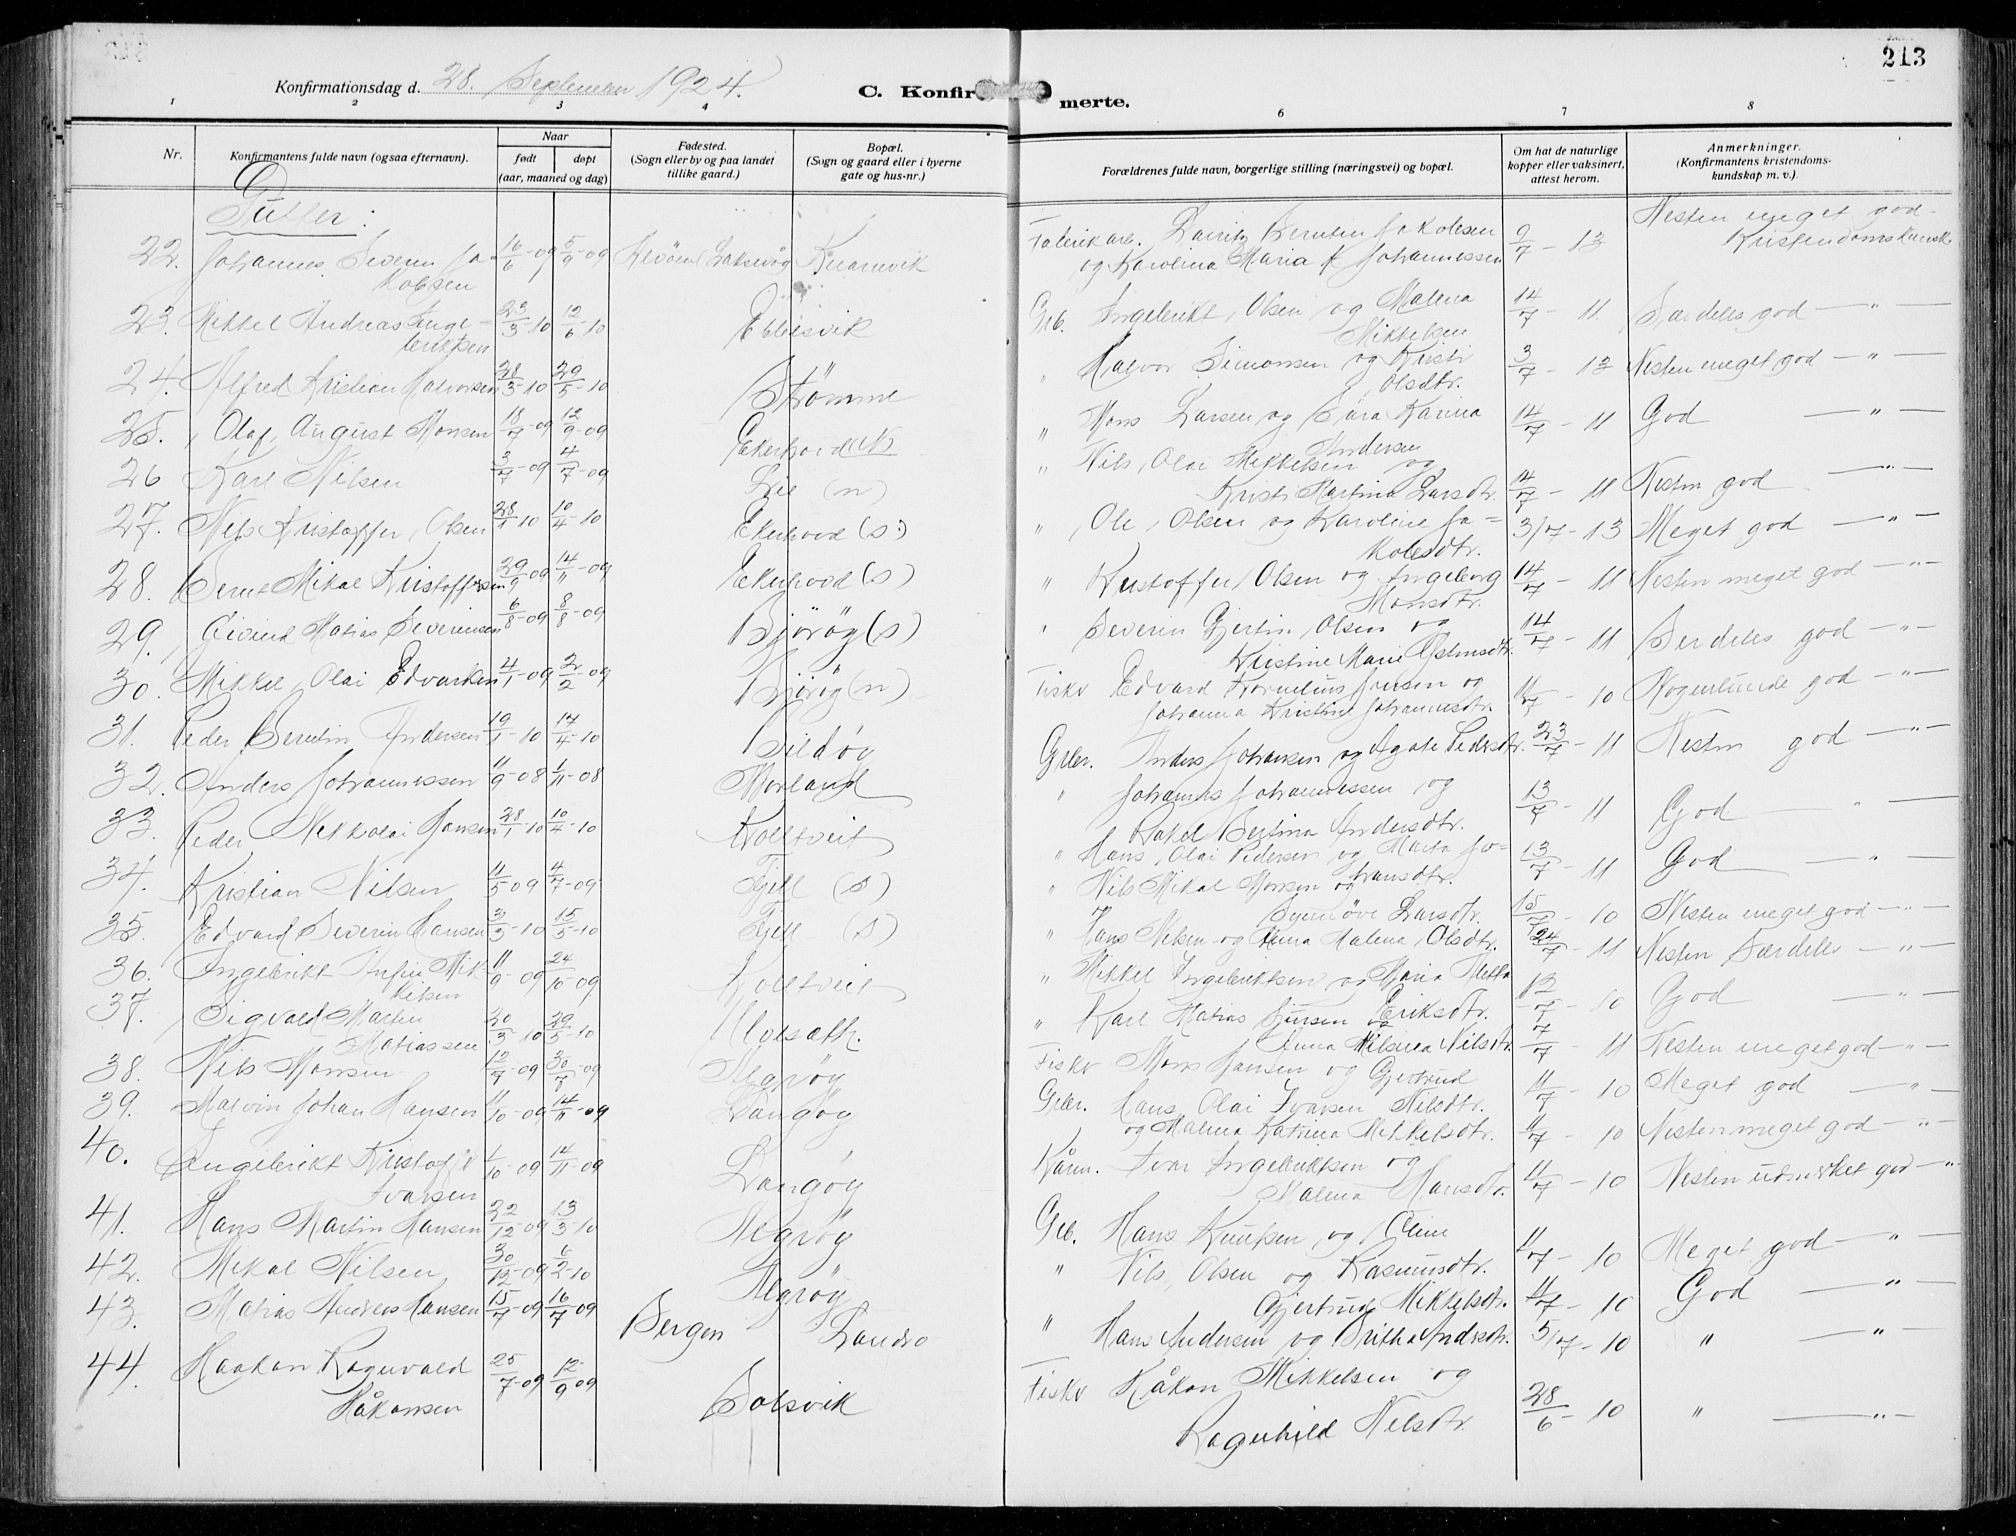 213
Konfirmationsdag d. 28. September 1924.
C. Konfir merte.
1 2 3 4 6 7 8
Nr.
Konfirmantens fulde navn (ogsaa efternavn).
Naar
født døpt
(aar, maaned og dag)
Fødested.
(Sogn eller by og paa landet
tillike gaard.)
Bopæl.
(Sogn og gaard eller i byerne
gate og hus-nr.)
Forældrenes fulde navn, borgerlige stilling (næringsvei) og bopæl.
Om hat de naturlige
kopper eller vaksinert,
attest herom.
Anmerkninger.
(Konfirmantens kristendoms-
kundskap m. v.)
Gutter:
22. Johannes Severin Ja- 16/6-09 5/9-09 Laksevåg Knarrvik Fabrikarb. Lauritz Berntin Jakobsen 9/7-13 Nesten meget god
kobsen og Karolina Maria f Johannessen Kristendomskunsk.
23. Mikkel Andreas Inge- 23/3-10 12/6-10 Ebbesvik Grb. Ingebrikt Olsen og Malena 14/7-11 Særdeles god -"-
briktsen Mikkelsen
24. Alfred Kristian Halvorsen 28/3-10 29/5-10 Strømme " Halvor Simonsen og Kristi 3/7-13 Nesten meget god -"-
Olsdtr.
25. Olaf August Monsen 18/7-09 12/9-09 Ekerhovd (N) " Mons Larsen og Sara Karina 14/7-11 God -"-
Andersen
26 Karl Nilsen 3/7-09 4/7-09 Lie (n) " Nils Olai Mikkelsen og
Kristi Martina Larsdtr. 14/7-11 Nesten god -"-
27. Nils Kristoffer Olsen 28/1-10 10/4-10 Ekerhovd (s) " Ole Olsen og Karoline Ja- 3/7-13 Meget god -"-
kobsdtr.
28. Bernt Mikal Kristoffersen 29/9-09 14/11-09 Ekerhovd (s) " Kristoffer Olsen og Ingeborg 14/7-11 Nesten meget god -"-
Monsdtr.
29. Eivind Matias Severinsen 6/8-09 8/8-09 Bjørøy (s) " Severin Gjertin Olsen og 14/7-11 Særdeles god -"-
Kristine Marie
30. Mikkel Olai Edvardsen 4/1-09 2/2-09 Bjørøy (n) Fiskr Edvard Kornelius Jensen og 11/7-10 Nogenlunde god -"-
Johanna Kristine Johannesdtr.
31. Peder Berntin Andersen 19/1-10 17/4-10 Bildøy Grbr. Anders Johansen og Agate Pedersdtr. 23/7-11 Nesten god -"-
32. Anders Johannessen 11/9-08 1/11-08 Morland " Johannes Johannessen og 13/7-11 God -"-
Rakel Bertina Andersdtr.
33. Peder Nikkolai Hansen 28/1-10 10/4-10 Kolltveit " Hans Olai Pedersen og Marta Jo- 13/7-11 God -"-
hansdtr.
34. Kristian Nilsen 11/5 09 4/7-09 Fjell (s) " Nils Mikal Monsen og
Synnøve Larsdtr. 15/7-10 Nesten meget god -"-
35. Edvard Severin Hansen 3/3-10 15/5-10 Fjell (s) " Hans Nilsen og Anna Malena Olsdtr. 24/7-11 Nesten Særdeles -"-
36. Ingebrikt Mik- 11/9-09 24/10-09 Kolltveit " Mikkel Ingebriktsen og Maria Metta 12/7-10 God -"-
kelsen Eriksdtr.
37. Sigvald Martin 20/3 10 29/5-10 " Karl Matias Sjursen og
Matiassen Anna Nilsina Nilsdtr. 7/7-11 Nesten meget god -"-
38. Nils Monsen 12/7-09 30/7-09 Algrøy Fiskr Mons Jansen og Gjertrud 11/7-10 Meget god -"-
39. Malvin Johan Hansen 11/10-09 14/11-09 Langøy Grbr. Hans Olai Ivarsen Nilsdtr.
og Malina Katrina Mikkelsdtr. 11/7-10 Nesten meget god -"-
40. Ingebrikt Kristoffer 1/10-09 14/11-09 Langøy Kårm. Ivar Ingebriktsen og 11/7-10 Nesten udmerket god -"-
Ivarsen Malena Hansdtr.
41. Hans Martin Hansen 22/12-09 13/3-10 Algrøy Grb. Hans Knutsen og Oline 11/7-10 Meget god -"-
Rasmusdtr.
42. Mikal Nilsen 30/12-09 6/2-10 Algrøy " Nils Olsen og
Gjertrud Mikkelsdtr. 11/7-10 God -"-
43. Matias Andreas Hansen 15/7-09 16/7-09 Bergen Landro " Hans Andersen og Britha Andrsdtr. 5/7-10 " -"-
44. Haakon Ragnvald 25/7-09 12/9 09 Solsvik Fiskr Håkon Mikkelsen og 28/6-10 " -"-
Håkonsen Ragnhild Nilsdtr.